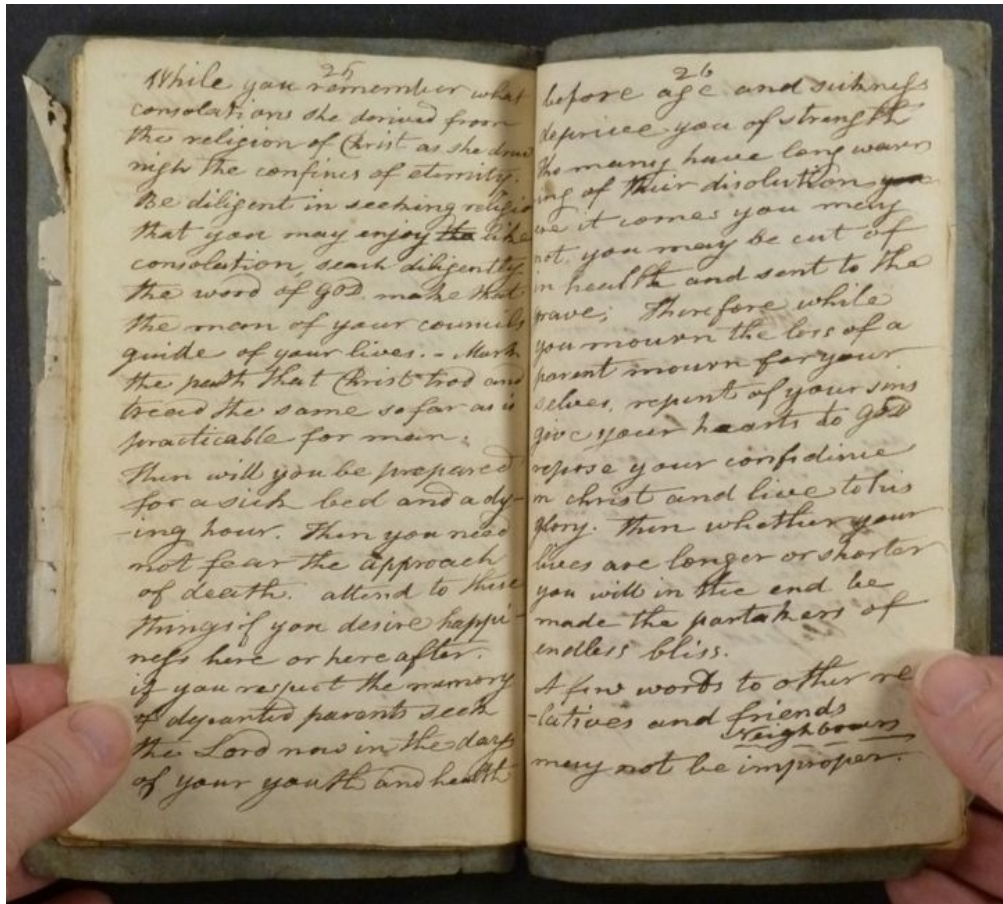 25
While you remember what
consolations she derived from
the religion of Christ as she drew
nigh the confines of eternity.
Be diligent in seeking religio
that you may enjoy the like
consolation, seach diligently
the word of GOD. make that
the man of your councils
guide of your lives. - Mark
the path that Christ trod and
tread the same so far as is
practicable for man.
Then will you be prepared
for a sick bed and a dy-
-ing hour. Then you need
not fear the approach
of death. attend to these
things if you desire happi-
ness here or here after.
if you respect the memory
of departed parents seek
the Lord now in the days
of your youth and health
26
before age and sickness
deprive you of strength
tho many have long warn
ing of their disolution
ere it comes you may
not. you may be cut of
in health and sent to the
grave; Therefore while
you mourn the loss of a
parent mourn for your
selves, repent of your sins
give your hearts to GOD
repose your confidince
in christ and live to his
glory. then whether your
lives are longer or shorter
you will in the end be
made the partakers of
endless bliss.
A few words to other re
-latives and friends
Neighbours
may not be improper.